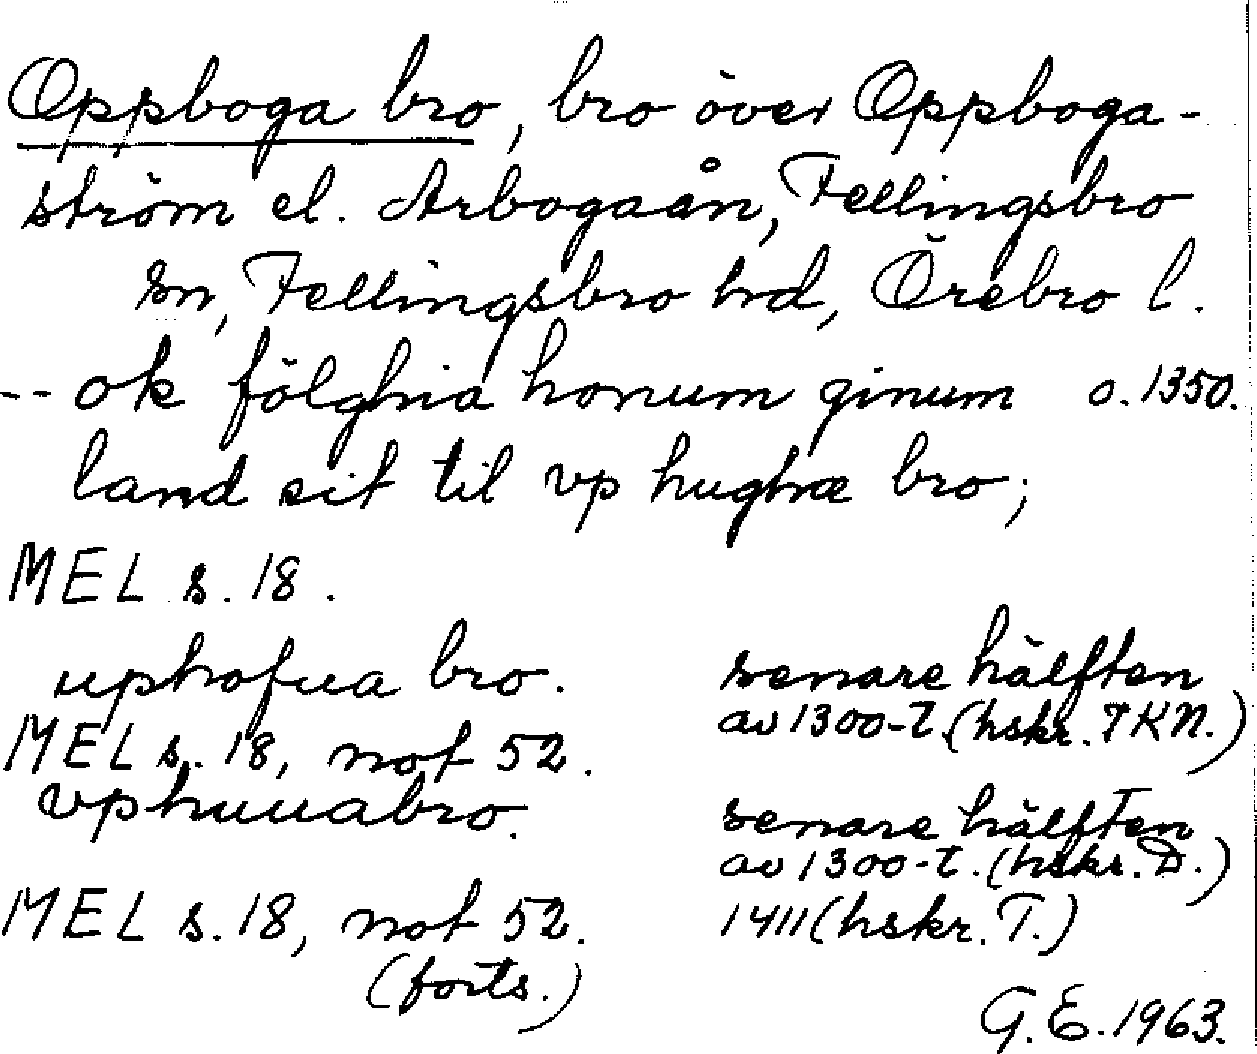 Oppboga bro, bro över Oppboga-
ström el. Arbogaån, Fellingsbro
sn, Fellingsbro hrd, Örebro l.
-- ok fölghia honum ginum o. 1350.
land sit til vp hughæ bro;
MEL s. 18.
uphofua bro. senare hälften
av 1300-t. (hskr. FKN.)
MEL s. 18, not 52.
vphuuabro. senare hälften
av 1300-t. (hskr. D.)
MEL s. 18, not 52. 1411 (hskr. T.)
(forts.)
G. E. 1963.